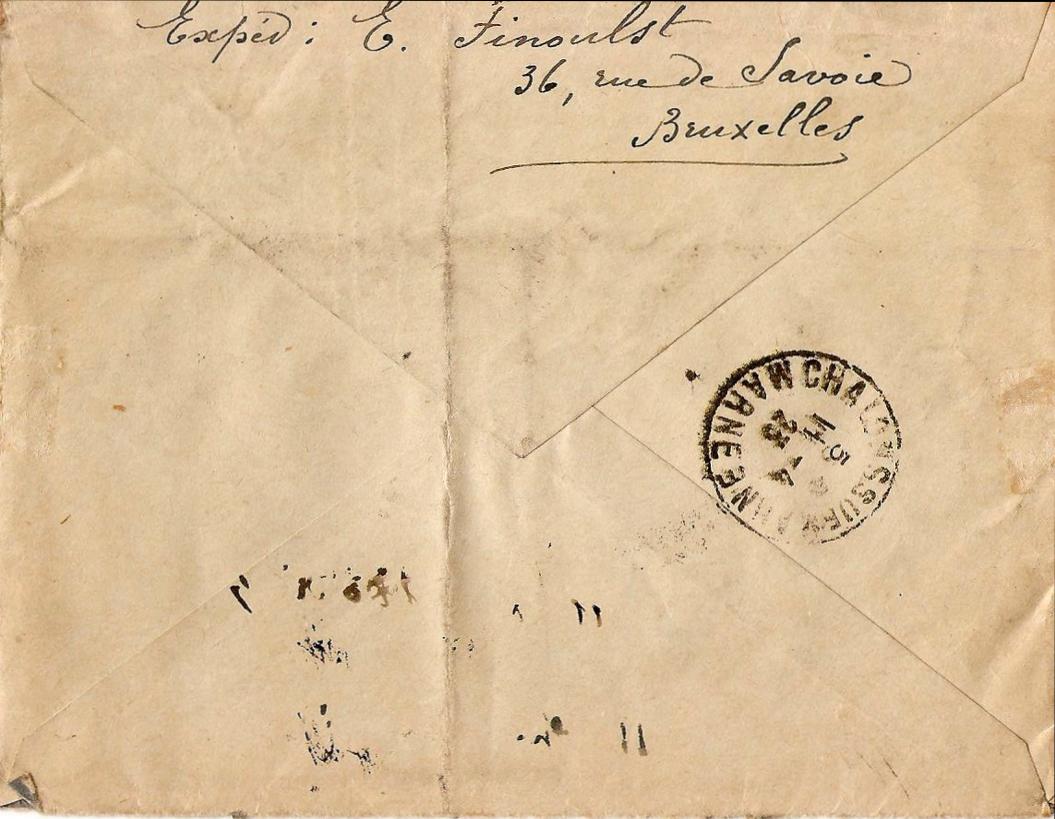 Expéd: E. Finoulst
36, rue de Savoie
Bruxelles
CHALONS SUR MARNE MARNE